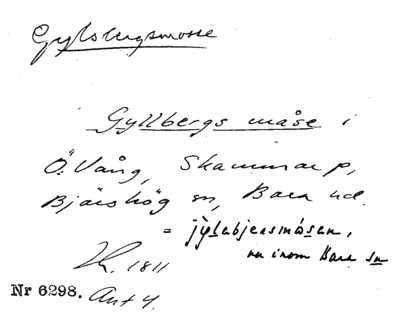 Gyllbergsmosse
Gyllbergs måse i
Ö. Vång, Skammarp,
Bjärshög sn, Bara hd.
= jỳlabjærsmåsan,
nu inom Bara sn
1811
Nr 6298. Ant 4.